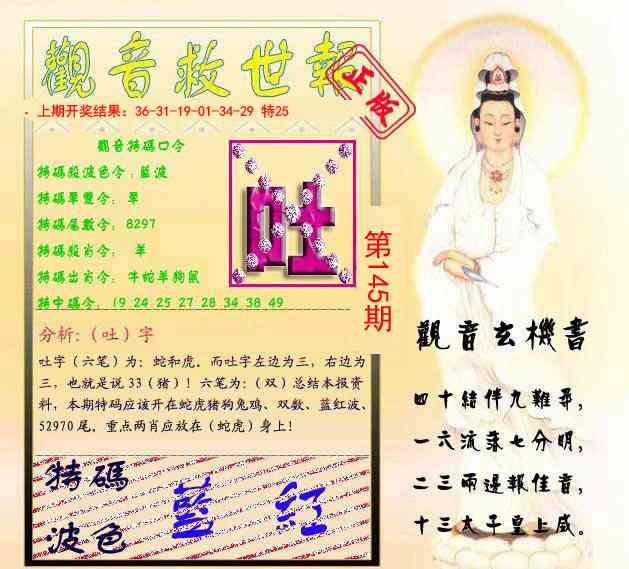 觀音救世報
正版
上期开奖结果：36-31-19-01-34-29 特25
觀音特碼口令
特碼殺波色令：藍波
特碼單雙令： 單
特碼尾數令： 8297
特碼殺肖令： 羊
特碼出肖令： 牛蛇羊狗鼠
特中碼令： 19 24 25 27 28 34 38 49
吐
第145期
分析:（吐）字
吐字（六笔）为：蛇和虎。而吐字左边为三，右边为
三，也就是说33（猪）！六笔为：（双）总结本报资
料，本期特码应该开在蛇虎猪狗兔鸡、双数、蓝红波、
52970尾。重点两肖应放在（蛇虎）身上！
特碼
波色
藍 紅
觀音玄機書
四十結伴九難尋，
一六流落七分明，
二三兩邊報佳音，
十三太子皇上威。